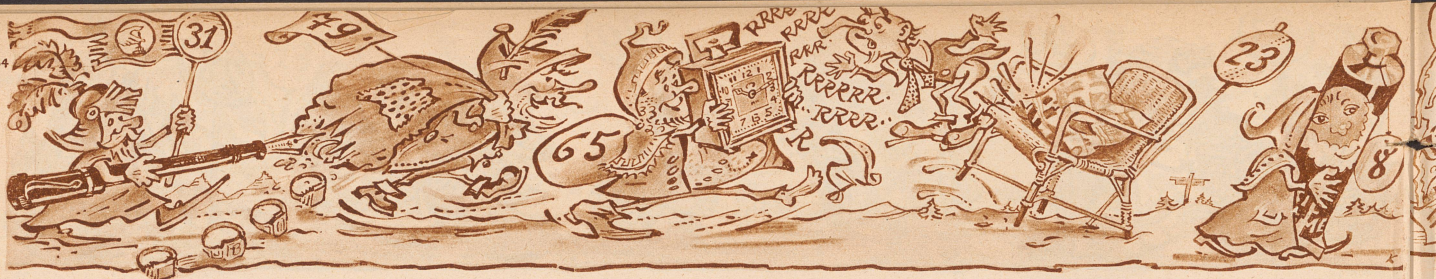 31
79
65
RRRR
RRRR
RRR.
RRRRRR.
RRRR..
R
23
8
K